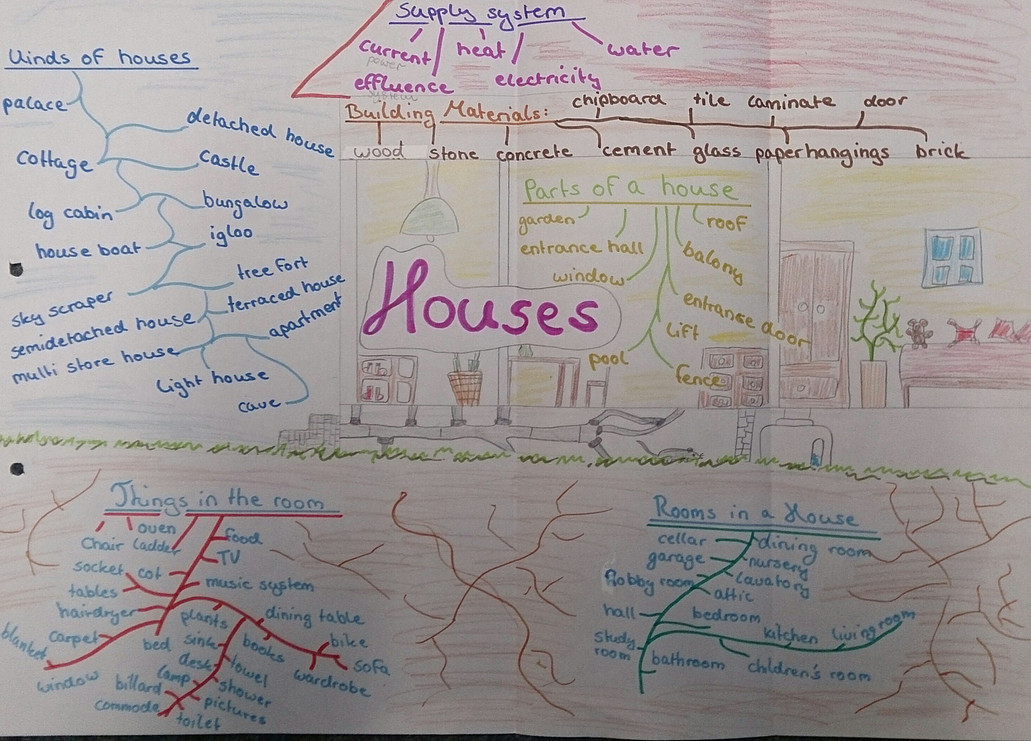 Supply system
current
power
heat
water
effluence
system
electricity
Kinds of houses
palace
detached house
cottage
castle
log cabin
bungalow
house boat
igloo
sky scraper
tree fort
semidetached house
terraced house
multi store house
apartment
light house
cave
Building Materials:
chipboard
tile
laminate
door
wood
stone
concrete
cement
glass
paperhangings
brick
Parts of a house
garden
roof
entrance hall
balcony
window
entranse door
lift
pool
fence
Houses
Things in the room
oven
chair
ladder
food
TV
socket
cot
music system
tables
hairdryer
plants
dining table
carpet
blanket
bed
sink
books
bike
desk
towel
sofa
wardrobe
window
lamp
shower
billard
pictures
commode
toilet
Rooms in a House
cellar
dining room
garage
nursery
hobby room
lavatory
attic
hall
bedroom
kitchen
living room
study
room
bathroom
children's room